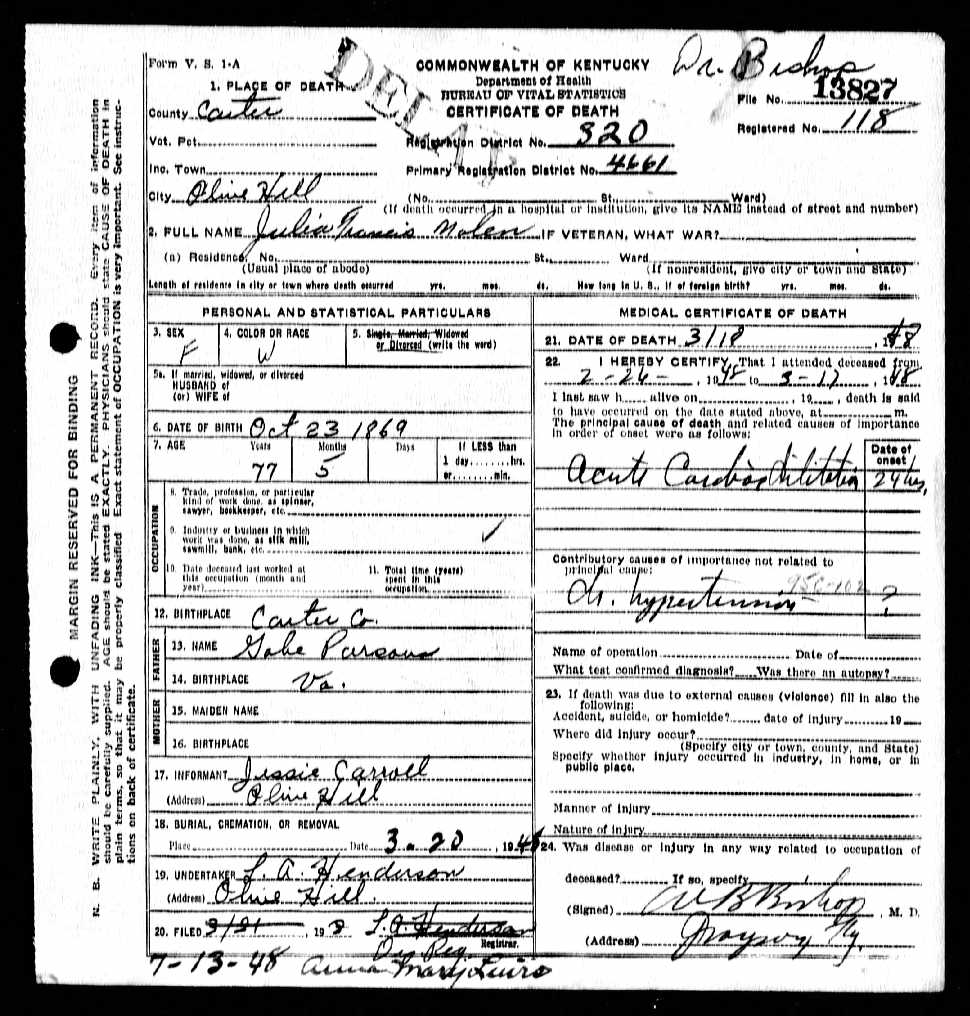 Form V. S. 1-A
DELAY
COMMONWEALTH OF KENTUCKY
Department of Health
BUREAU OF VITAL STATISTICS
CERTIFICATE OF DEATH
Dr. Bishop
File No. 13827
Registered No. 118
1. PLACE OF DEATH
County Carter
Vot. Pct.
Inc. Town
City Olive Hill
Registration District No. 320
Primary Registration District No. 4661
(No. St., Ward)
(If death occurred in a hospital or institution, give its NAME instead of street and number)
2. FULL NAME Julia Francis Nolen IF VETERAN, WHAT WAR?
(a) Residence, No. St., Ward
(Usual place of abode) (If nonresident, give city or town and State)
Length of residence in city or town where death occurred yrs. mos. ds. How long in U. S., if of foreign birth? yrs. mos. ds.
PERSONAL AND STATISTICAL PARTICULARS
3. SEX F
4. COLOR OR RACE W
5. Single, Married, Widowed or Divorced (write the word)
5a. If married, widowed, or divorced
HUSBAND of
(or) WIFE of
6. DATE OF BIRTH Oct 23 1869
7. AGE Years Months Days If LESS than
77 5 1 day,........hrs.
or........min.
OCCUPATION
8. Trade, profession, or particular
kind of work done, as spinner,
sawyer, bookkeeper, etc.
9. Industry or business in which
work was done, as silk mill,
sawmill, bank, etc.
10. Date deceased last worked at
this occupation (month and
year)
11. Total time (years)
spent in this
occupation
12. BIRTHPLACE Carter Co.
FATHER
13. NAME Gabe Parsons
14. BIRTHPLACE Va.
MOTHER
15. MAIDEN NAME
16. BIRTHPLACE
17. INFORMANT Jessie Carroll
(Address) Olive Hill
18. BURIAL, CREMATION, OR REMOVAL
Place Date 3-20, 1948
19. UNDERTAKER L. A. Henderson
(Address) Olive Hill
20. FILED 3/21, 198 L. A. Henderson
Registrar.
Reg.
7-13-48 Anna Mary
MEDICAL CERTIFICATE OF DEATH
21. DATE OF DEATH 3/18, 48
22. I HEREBY CERTIFY, That I attended deceased from
2-26-, 1948 to 3-17, 1948
I last saw h.... alive on, 19...., death is said
to have occurred on the date stated above, at m.
The principal cause of death and related causes of importance
in order of onset were as follows:
Date of onset
Acute Cardiac Dilitation 24 hrs.
Contributory causes of importance not related to
principal cause:
95C-102
Ch. hypertension ?
Name of operation Date of
What test confirmed diagnosis? Was there an autopsy?
23. If death was due to external causes (violence) fill in also the
following:
Accident, suicide, or homicide? date of injury 19
Where did injury occur?
(Specify city or town, county, and State)
Specify whether injury occurred in industry, in home, or in
public place.
Manner of injury
Nature of injury
24. Was disease or injury in any way related to occupation of
deceased? If so, specify
(Signed) W B Bishop, M. D.
(Address) Grayson Ky.
MARGIN RESERVED FOR BINDING
N. B. WRITE PLAINLY, WITH UNFADING INK—THIS IS A PERMANENT RECORD. Every item of information
should be carefully supplied. AGE should be stated EXACTLY. PHYSICIANS should state CAUSE OF DEATH in
plain terms, so that it may be properly classified. Exact statement of OCCUPATION is very important. See instruc-
tions on back of certificate.